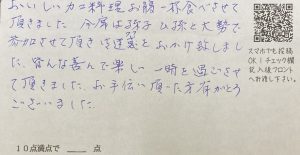 おいしいカニ料理お腹一杯食べさせて
頂きました。今度は孫子ひ孫と大勢で
参加させて頂き迷惑をおかけ致しまし
た。皆んな喜んで楽しい一時を過ごさせ
て頂きました。お手伝い頂いた方ありがとう
ございました。
10点満点で 点
スマホでも投稿
OK!チェック欄
記入後フロント
へお渡し下さい。